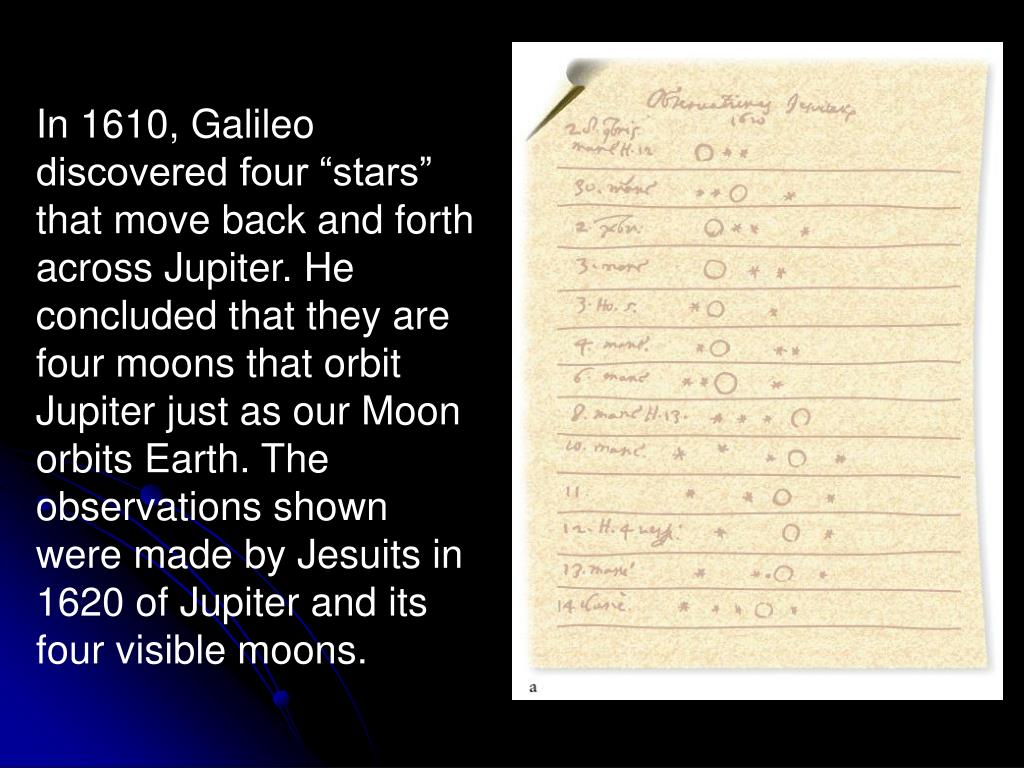 In 1610, Galileo
discovered four “stars”
that move back and forth
across Jupiter. He
concluded that they are
four moons that orbit
Jupiter just as our Moon
orbits Earth. The
observations shown
were made by Jesuits in
1620 of Jupiter and its
four visible moons.
1610
mane H.12
30. mane
2.
3. mane
3. Ho. 5.
4. mane.
6. mane
8. mane H.13.
10. mane.
11
12. H. 4
13. mane
14
a